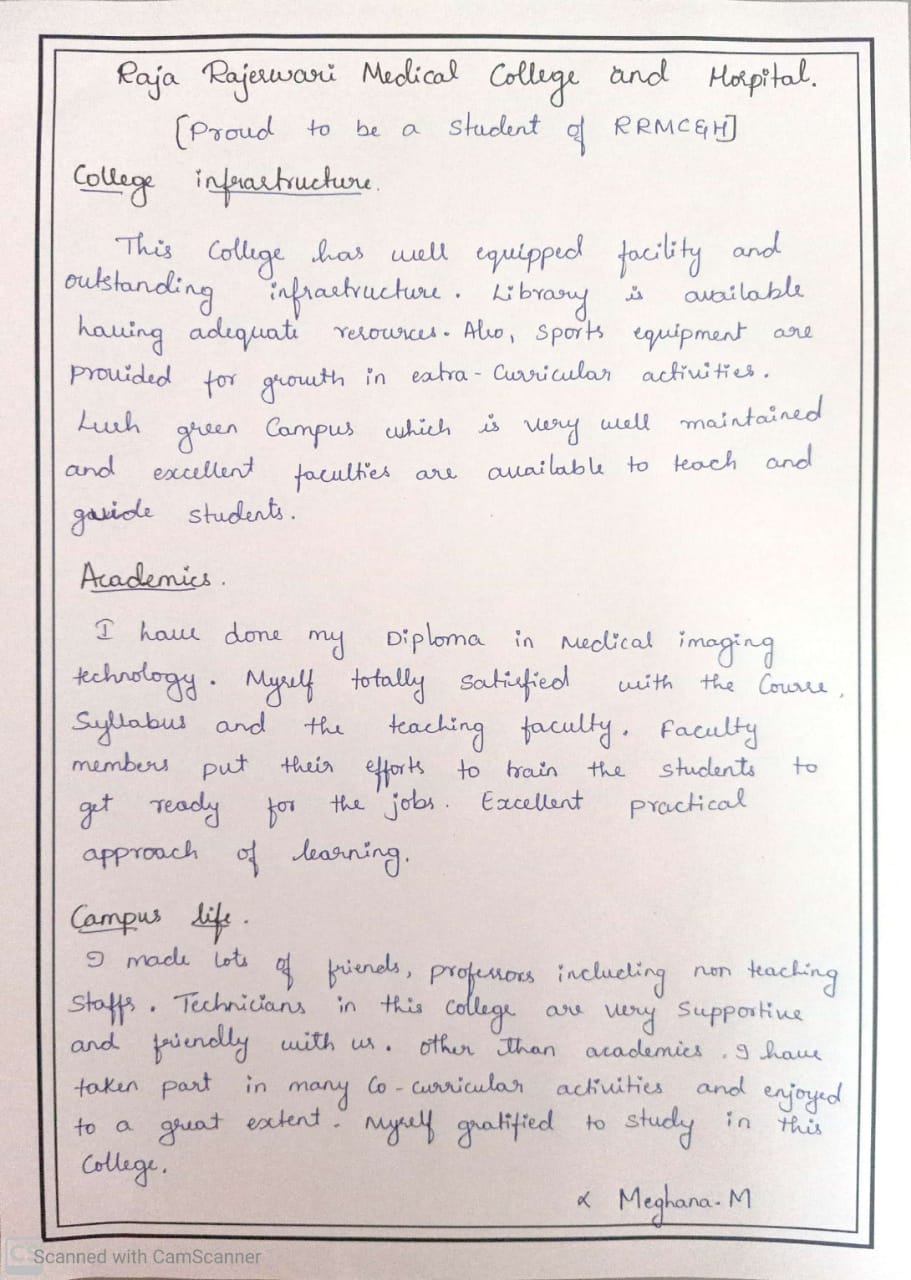 Raja Rajeswari Medical College and Hospital.
[Proud to be a student of RRMC&H]
College infrastructure.
This College has well equipped facility and
outstanding infrastructure. Library is available
having adequate resources. Also, sports equipment are
provided for growth in extra-curricular activities.
Lush green Campus which is very well maintained
and excellent faculties are available to teach and
guide students.
Academics.
I have done my Diploma in Medical imaging
technology. Myself totally satisfied with the Course,
Syllabus and the teaching faculty. Faculty
members put their efforts to train the students to
get ready for the jobs. Excellent practical
approach of learning.
Campus life.
I made lots of friends, professors including non teaching
staffs. Technicians in this College are very supportive
and friendly with us. Other than academics, I have
taken part in many Co-curricular activities and enjoyed
to a great extent. Myself gratified to study in this
College.
Meghana. M
CS Scanned with CamScanner